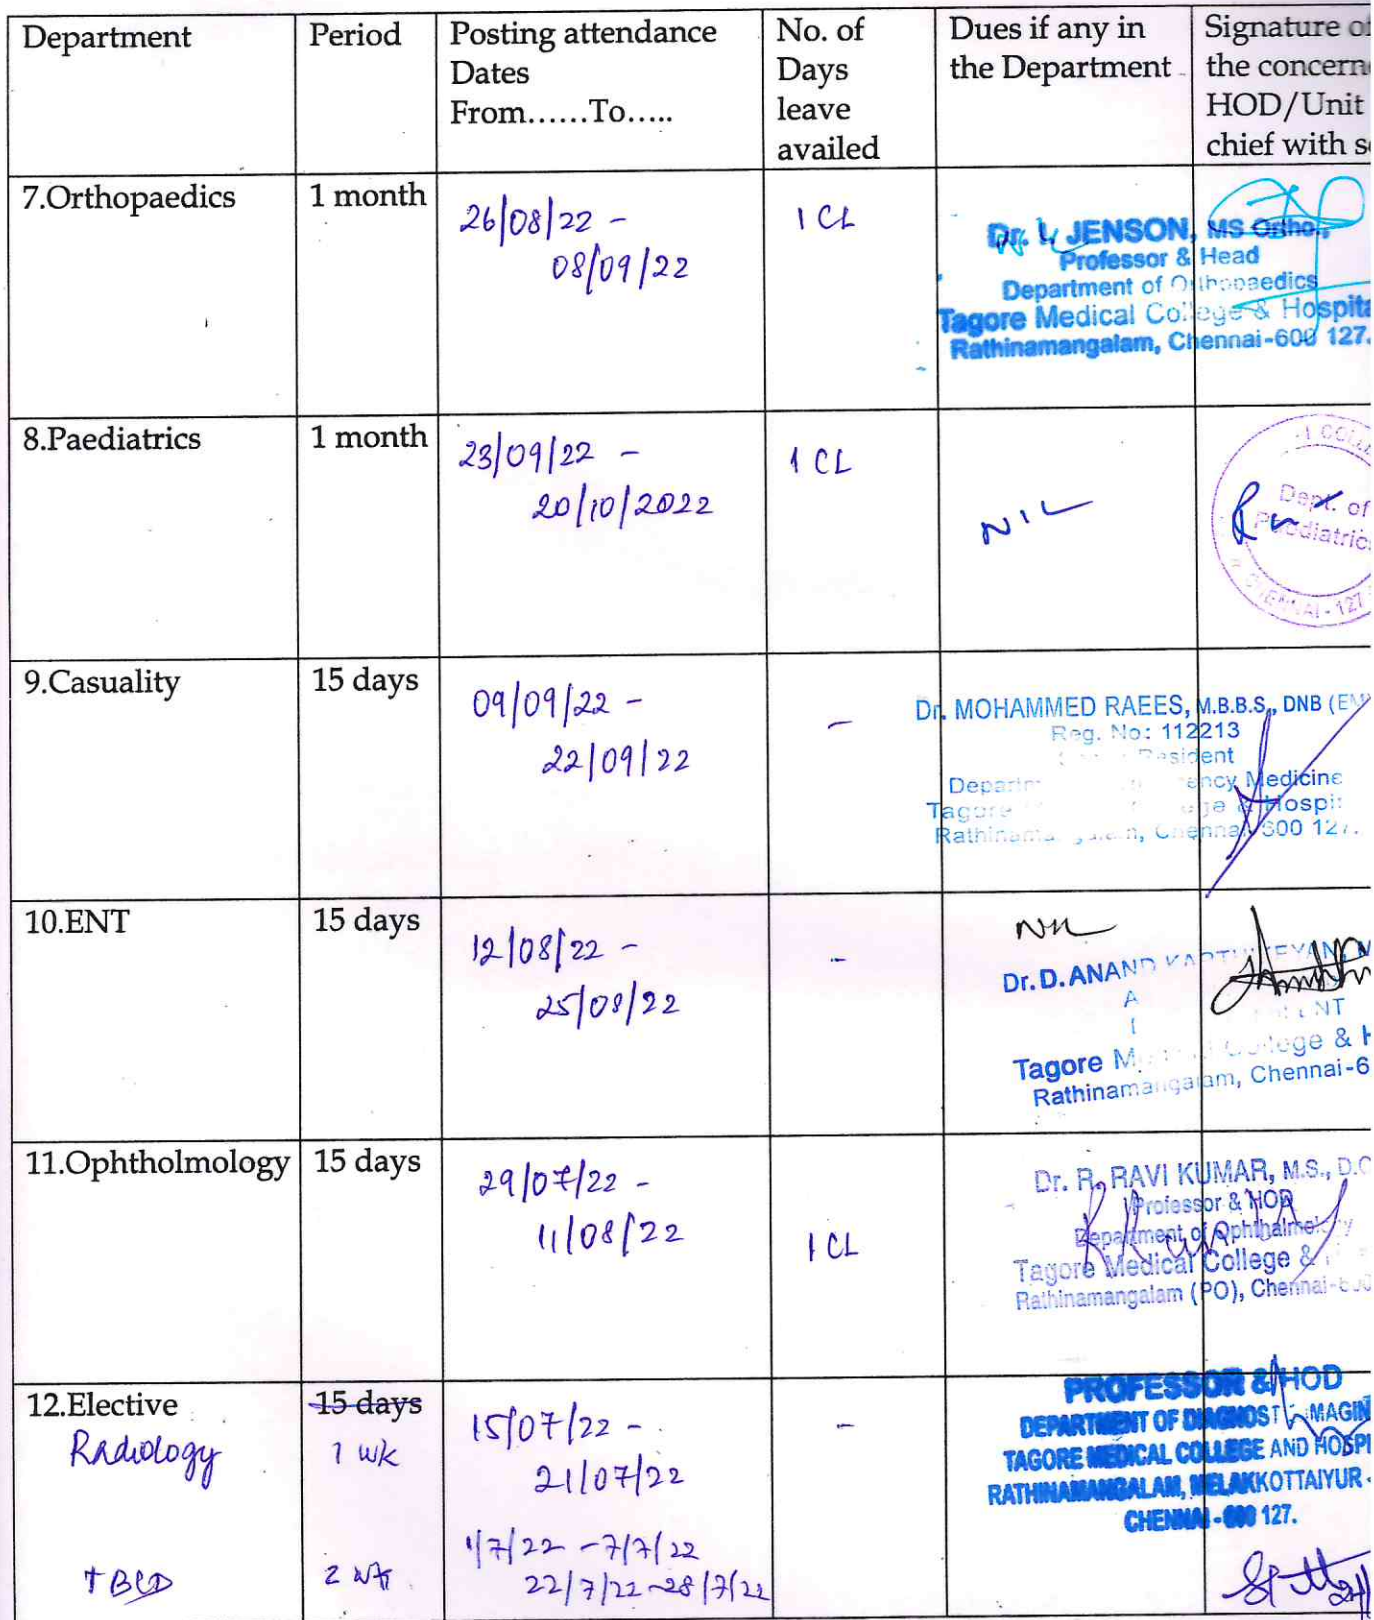 Department
Period
Posting attendance
Dates
From......To.....
No. of
Days
leave
availed
Dues if any in
the Department
Signature of
the concern
HOD/Unit
chief with s
7.Orthopaedics
1 month
26/08/22 -
08/09/22
1 CL
Dr. L JENSON, MS Ortho.,
Professor & Head
Department of Orthopaedics
Tagore Medical College & Hospita
Rathinamangalam, Chennai-600 127.
8.Paediatrics
1 month
23/09/22 -
20/10/2022
1 CL
NIL
Dept. of
Paediatric
CHENNAI - 127
9.Casuality
15 days
09/09/22 -
22/09/22
-
Dr. MOHAMMED RAEES, M.B.B.S., DNB (EM)
Reg. No: 112213
Resident
ency Medicine
Tagore ge & Hospit
Rathinamangalam, Chennai 600 127.
10.ENT
15 days
12/08/22 -
25/08/22
-
Nil
Dr. D. ANAND KARTHIKEYAN, M
ENT
Tagore M College & H
Rathinamangalam, Chennai-6
11.Ophtholmology
15 days
29/07/22 -
11/08/22
1 CL
Dr. R. RAVI KUMAR, M.S., D.O
Professor & HOD
Department of Ophthalmology
Tagore Medical College &
Rathinamangalam (PO), Chennai-600
12.Elective
Radiology
15 days
1 wk
15/07/22 -
21/07/22
-
PROFESSOR & HOD
DEPARTMENT OF DIAGNOSTIC IMAGIN
TAGORE MEDICAL COLLEGE AND HOSPI
RATHINAMANGALAM, MELAKKOTTAIYUR -
CHENNAI - 600 127.
2 wk
1/7/22 - 7/7/22
22/7/22 - 28/7/22